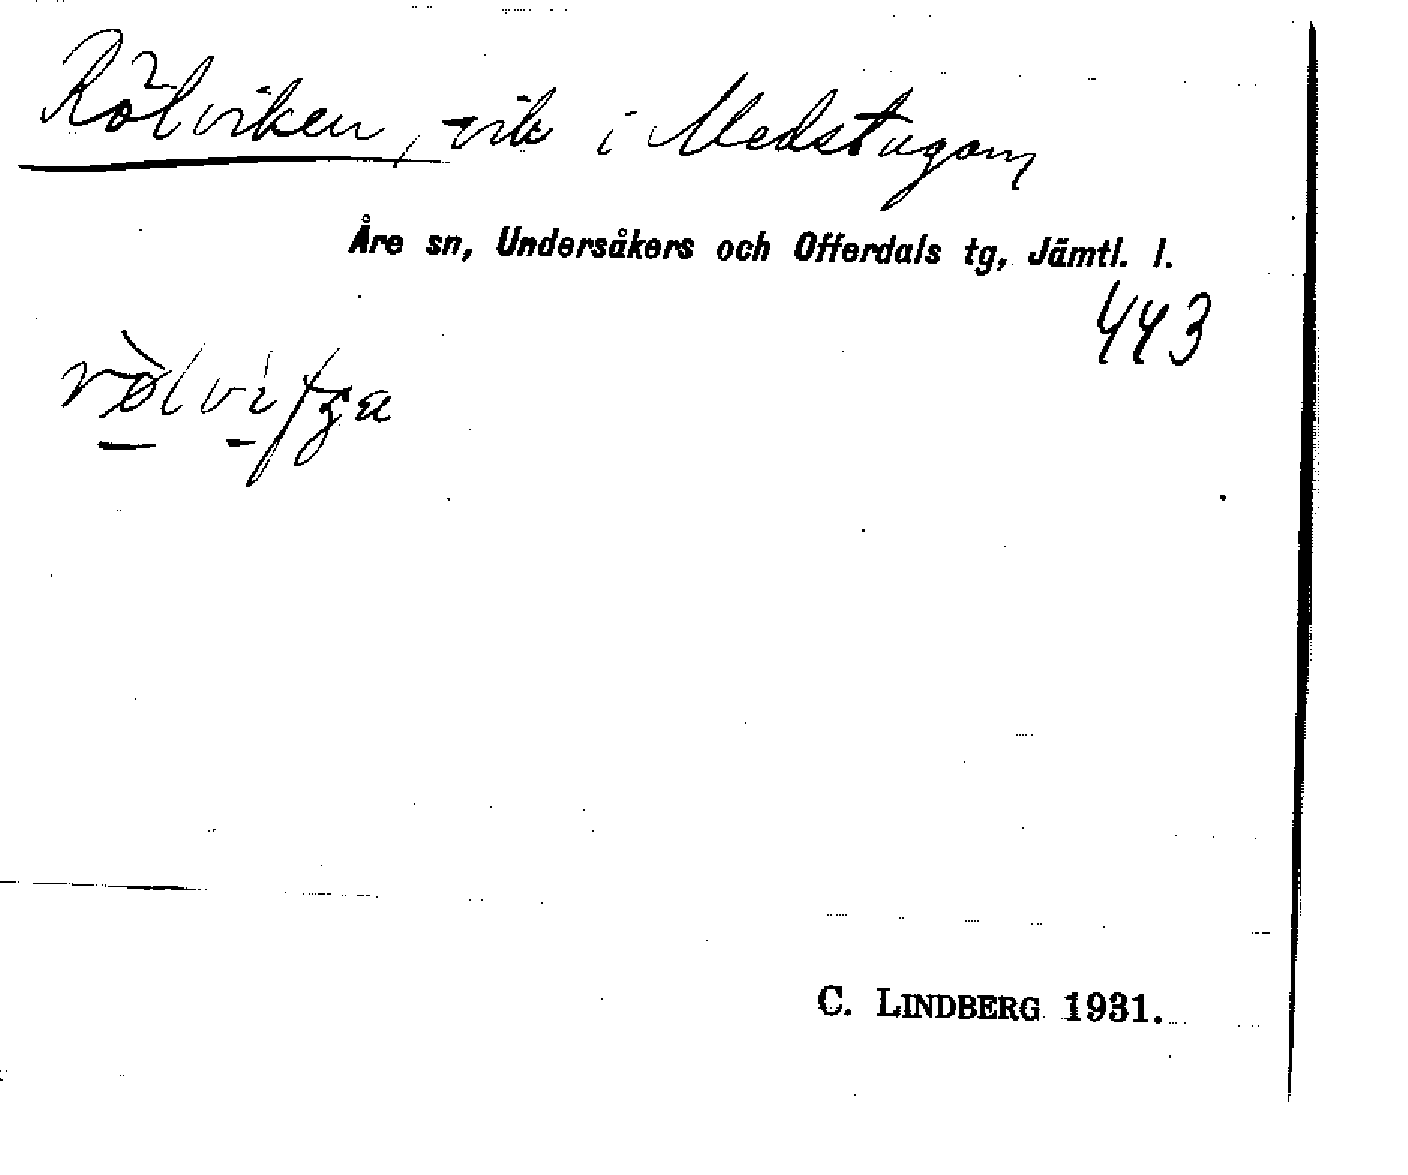 Rölviken, vik i Medstugan
Åre sn, Undersåkers och Offerdals tg, Jämtl. l.
443
C. LINDBERG 1931.